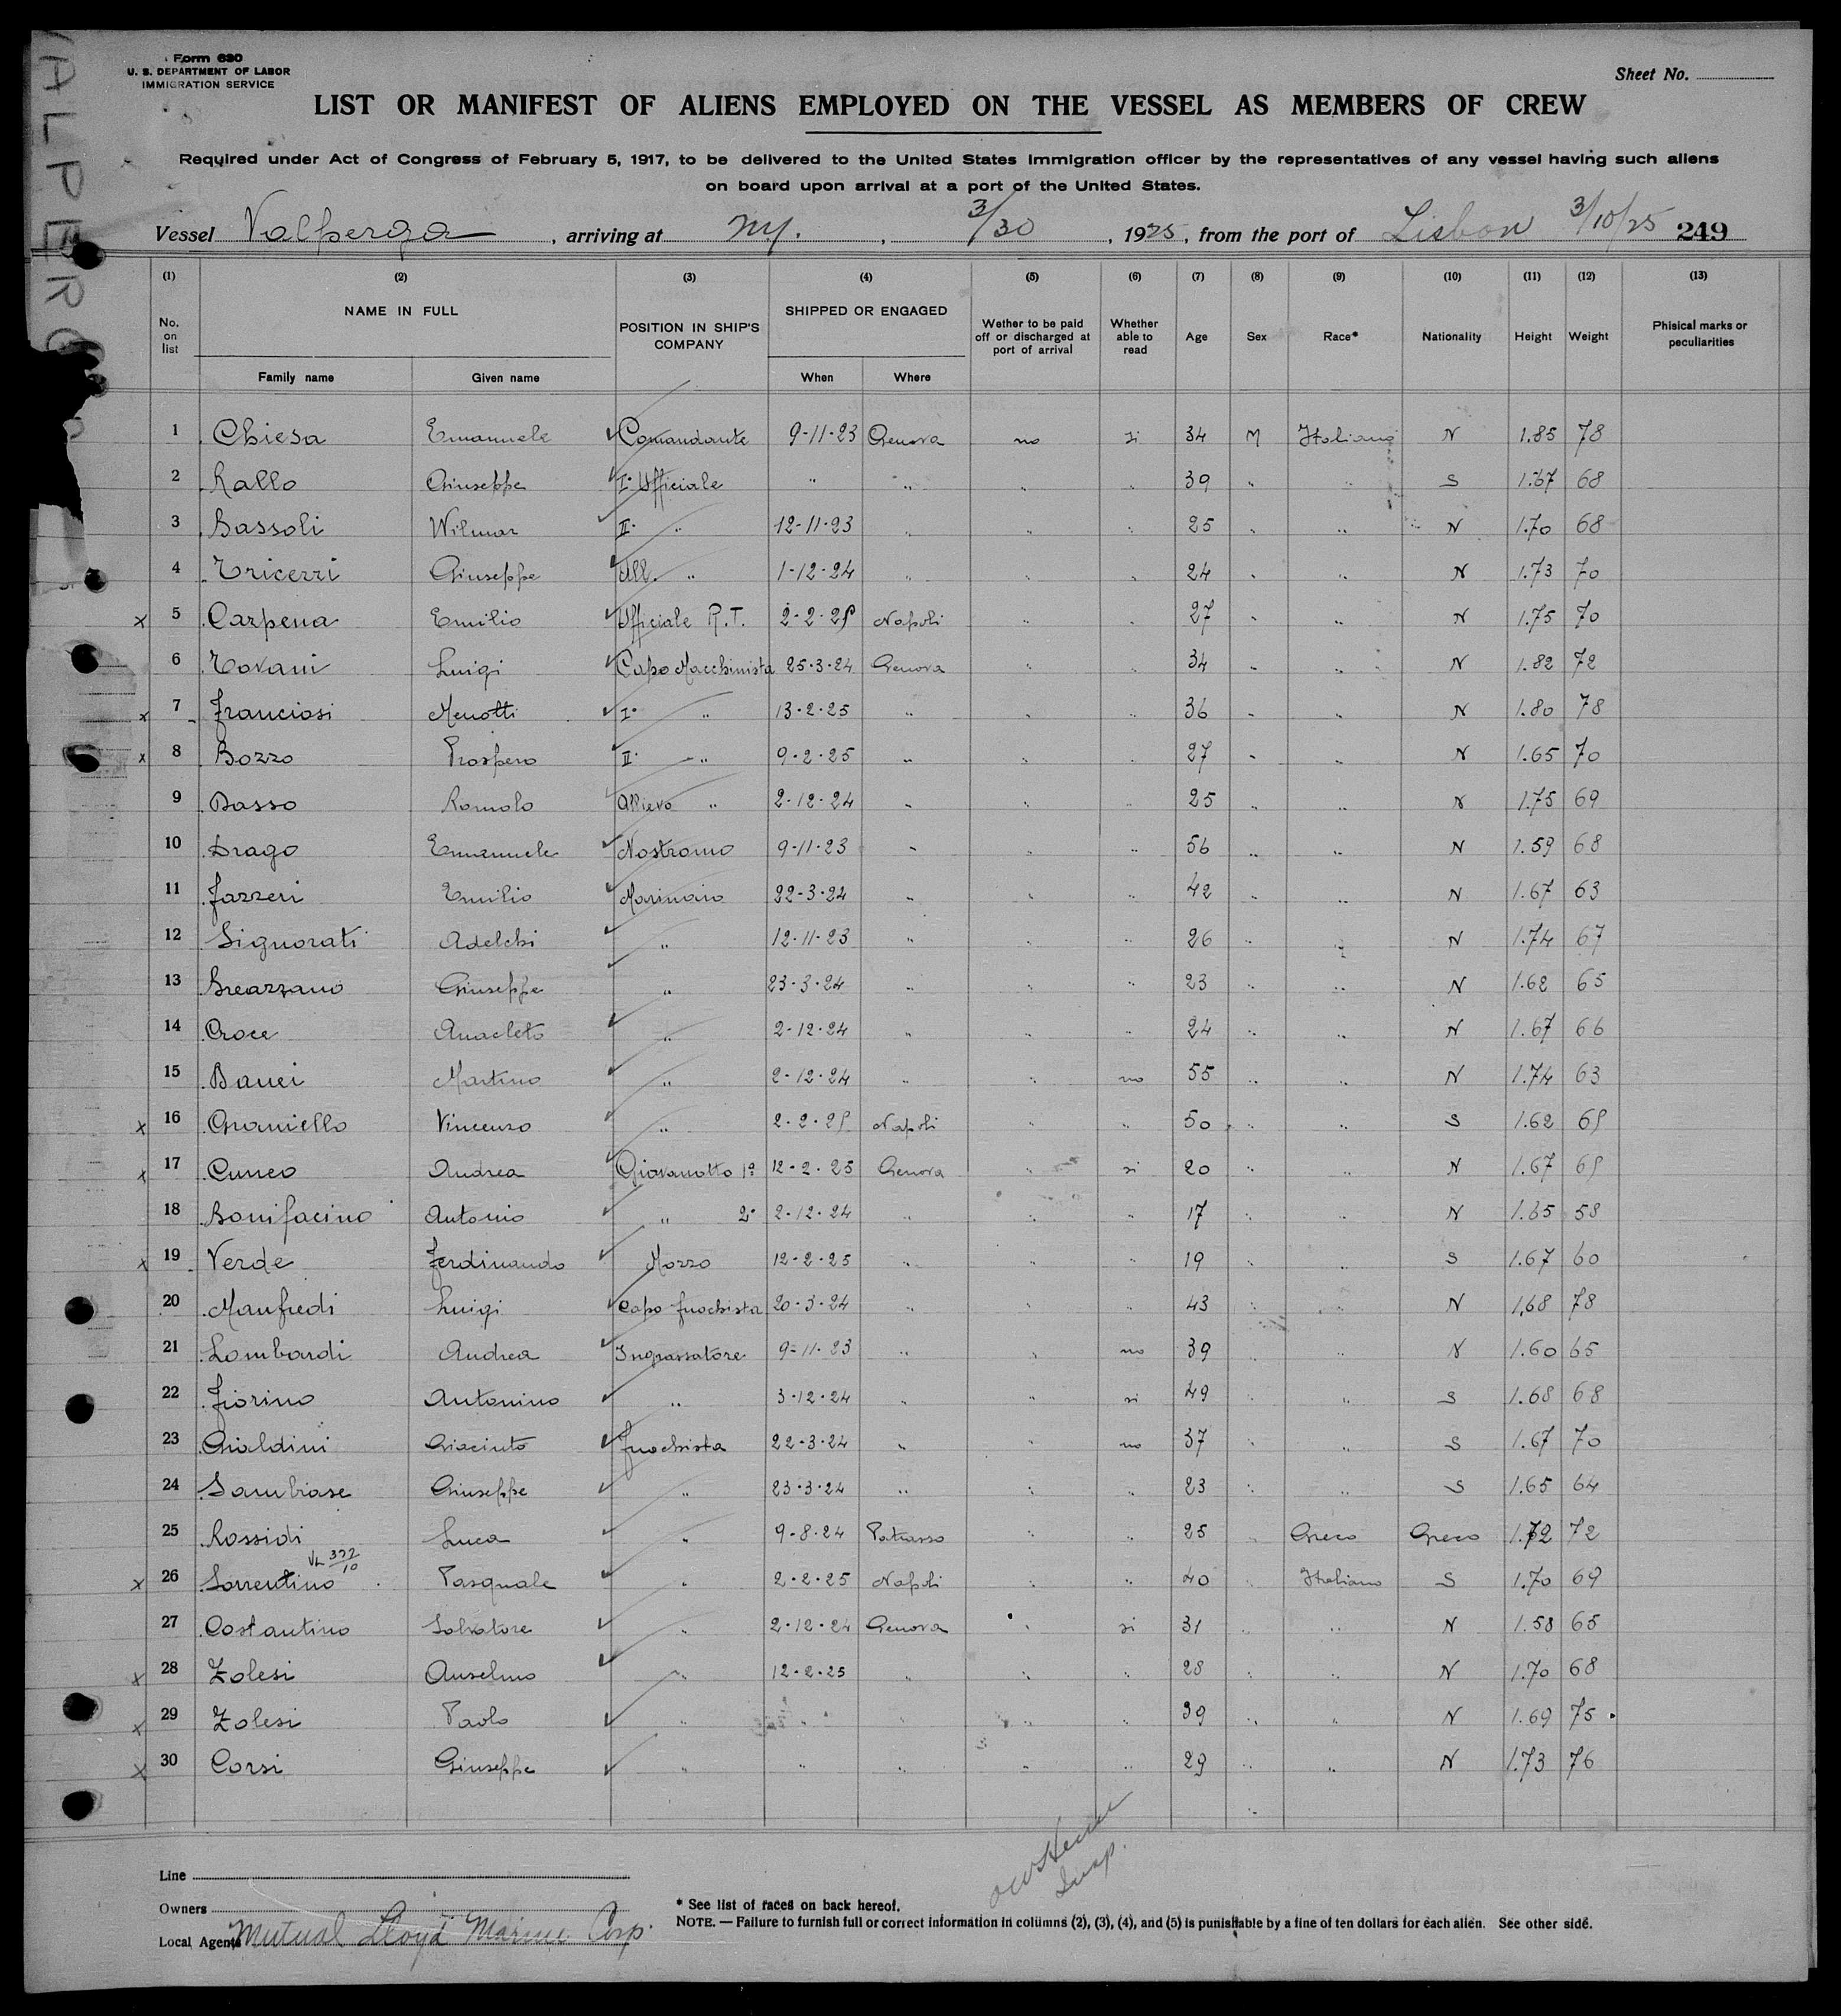 VALPERG
Form 680
U. S. DEPARTMENT OF LABOR
IMMIGRATION SERVICE
Sheet No.
LIST OR MANIFEST OF ALIENS EMPLOYED ON THE VESSEL AS MEMBERS OF CREW
Required under Act of Congress of February 5, 1917, to be delivered to the United States Immigration officer by the representatives of any vessel having such aliens
on board upon arrival at a port of the United States.
Vessel Valperga, arriving at NY., 3/30, 1925, from the port of Lisbon 3/10/25 249
(1) (2) (3) (4) (5) (6) (7) (8) (9) (10) (11) (12) (13)
No. on list NAME IN FULL POSITION IN SHIP'S COMPANY SHIPPED OR ENGAGED Wether to be paid off or discharged at port of arrival Whether able to read Age Sex Race* Nationality Height Weight Phisical marks or peculiarities
Family name Given name When Where
1 Chiesa Emanuele Comandante 9-11-23 Genova no si 34 M Italiano N 1.85 78
2 Rallo Giuseppe I° Ufficiale " " " " 39 " " S 1.67 68
3 Bassoli Wilmar II° " 12-11-23 " " " 25 " " N 1.70 68
4 Tricerri Giuseppe All. " 1-12-24 " " " 24 " " N 1.73 70
x 5 Carpena Emilio Ufficiale R.T. 2-2-25 Napoli " " 27 " " N 1.75 70
6 Tovani Luigi Capo Macchinista 25-3-24 Genova " " 34 " " N 1.82 72
x 7 Franciosi Menotti I° " 13-2-25 " " " 36 " " N 1.80 78
x 8 Bozzo Prospero II° " 9-2-25 " " " 27 " " N 1.65 70
9 Dasso Romolo Allievo " 2-12-24 " " " 25 " " N 1.75 69
10 Drago Emanuele Nostromo 9-11-23 " " " 56 " " N 1.59 68
11 Fazzeri Emilio Marinaio 22-3-24 " " " 42 " " N 1.67 63
12 Signorati Adelchi " 12-11-23 " " " 26 " " N 1.74 67
13 Breazzano Giuseppe " 23-3-24 " " " 23 " " N 1.62 65
14 Croce Anacleto " 2-12-24 " " " 24 " " N 1.67 66
15 Banci Martino " 2-12-24 " " no 55 " " N 1.74 63
x 16 Graniello Vincenzo " 2-2-25 Napoli " " 50 " " S 1.62 65
x 17 Cuneo Andrea Giovanotto 1° 12-2-25 Genova " si 20 " " N 1.67 65
18 Bonifacino Antonio " 2° 2-12-24 " " " 17 " " N 1.65 58
x 19 Verde Ferdinando Mozzo 12-2-25 " " " 19 " " S 1.67 60
20 Manfredi Luigi Capo fuochista 20-3-24 " " " 43 " " N 1.68 78
21 Lombardi Andrea Ingrassatore 9-11-23 " " no 39 " " N 1.60 65
22 Fiorino Antonino " 3-12-24 " " si 49 " " S 1.68 68
23 Gialdini Giacinto Fuochista 22-3-24 " " no 37 " " S 1.67 70
24 Sambiase Giuseppe " 23-3-24 " " " 23 " " S 1.65 64
25 Rossidi Luca " 9-8-24 Patrasso " " 25 " Greco Greco 1.72 72
VL 377/10
x 26 Sorrentino Pasquale " 2-2-25 Napoli " " 40 Italiano S 1.70 69
27 Costantino Salvatore " 2-12-24 Genova " si 31 " " N 1.58 65
x 28 Zolesi Anselmo " 12-2-25 " " " 28 " " N 1.70 68
x 29 Zolesi Paolo " " " " " 39 " " N 1.69 75
x 30 Corsi Giuseppe " " " " " 29 " " N 1.73 76
Line
Owners
Local Agents Mutual Lloyd Marine Corp.
Insp.
* See list of races on back hereof.
NOTE. — Failure to furnish full or correct information in columns (2), (3), (4), and (5) is punishable by a fine of ten dollars for each alien. See other side.